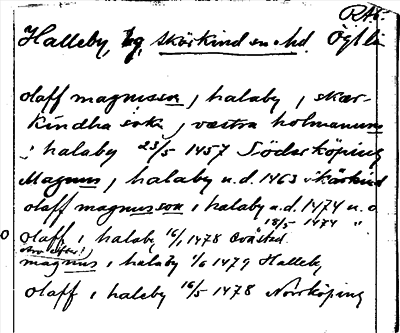 RAp.
Halleby, bg, skärkind sn o hd. Ögl
olaff magnusson, halaby, skær-
kindha sokn, væstra holmanum
i halaby 23/5 1457 Söderköping
Magnus, halaby u.d. 1463 skärkind
olaff magnusson i halaby u.d. 1474 u.o
18/5 1474 "
olaff, i halaby 16/1 1478
magnus, i halaby 1/6 1479 Halleby
olaff i halaby 16/5 1478 Norrköping